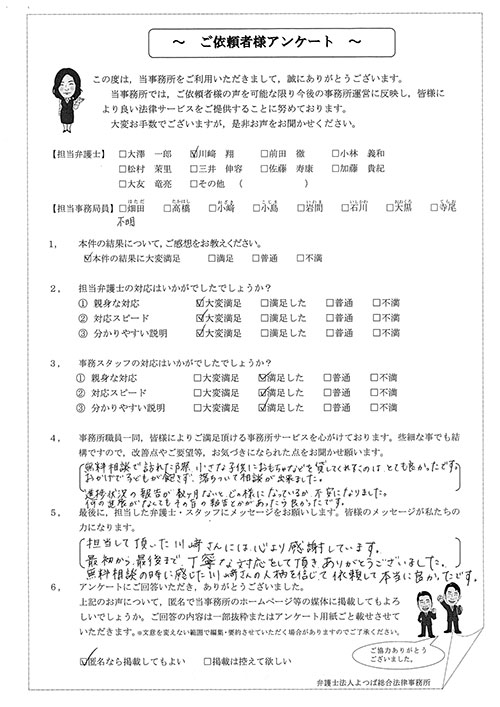 ～ ご依頼者様アンケート ～
この度は，当事務所をご利用いただきまして，誠にありがとうございます。
当事務所では，ご依頼者様の声を可能な限り今後の事務所運営に反映し，皆様に
より良い法律サービスをご提供することに努めております。
大変お手数でございますが，是非お声をお聞かせください。
【担当弁護士】 □大澤 一郎 ☑川﨑 翔 □前田 徹 □小林 義和
□松村 茉里 □三井 伸容 □佐藤 寿康 □加藤 貴紀
□大友 竜亮 □その他 （ ）
【担当事務局員】 □畑田 □高橋 □小﨑 □小島 □岩間 □石川 □大黒 □寺尾
不明
1． 本件の結果について，ご感想をお教えください。
☑本件の結果に大変満足 □満足 □普通 □不満
2． 担当弁護士の対応はいかがでしたでしょうか？
① 親身な対応 ☑大変満足 □満足した □普通 □不満
② 対応スピード ☑大変満足 □満足した □普通 □不満
③ 分かりやすい説明 ☑大変満足 □満足した □普通 □不満
3． 事務スタッフの対応はいかがでしたでしょうか？
① 親身な対応 □大変満足 ☑満足した □普通 □不満
② 対応スピード □大変満足 ☑満足した □普通 □不満
③ 分かりやすい説明 □大変満足 ☑満足した □普通 □不満
4． 事務所職員一同，皆様によりご満足頂ける事務所サービスを心がけております。些細な事でも結
構ですので，改善点やご要望等，お気づきになられた点をお聞かせ願います。
無料相談で訪れた際、小さな子供におもちゃなどを貸してくれたのはとても良かったです。
おかげで子どもが飽きず、落ちついて相談が出来ました。
進捗状況の報告が数ヶ月ないと、どの様になっているか不安になりました。
何の進展がなくてもその旨の報告とかがあったら良かったです。
5． 最後に，担当した弁護士・スタッフにメッセージをお願いします。皆様のメッセージが私たちの
力になります。
担当して頂いた川﨑さんには心より感謝しています。
最初から最後まで丁寧な対応をして頂きありがとうございました。
無料相談の時に感じた川﨑さんの人柄を信じて依頼して本当に良かったです。
6． アンケートにご回答いただき，ありがとうございました。
上記のお声について，匿名で当事務所のホームページ等の媒体に掲載してもよろ
しいでしょうか。ご回答の内容は一部抜粋またはアンケート用紙ごと載せさせて
いただきます。※文意を変えない範囲で編集・要約させていただく場合がありますのでご了承ください。
☑匿名なら掲載してもよい □掲載は控えて欲しい
ご協力ありがとう
ございました。
弁護士法人よつば総合法律事務所